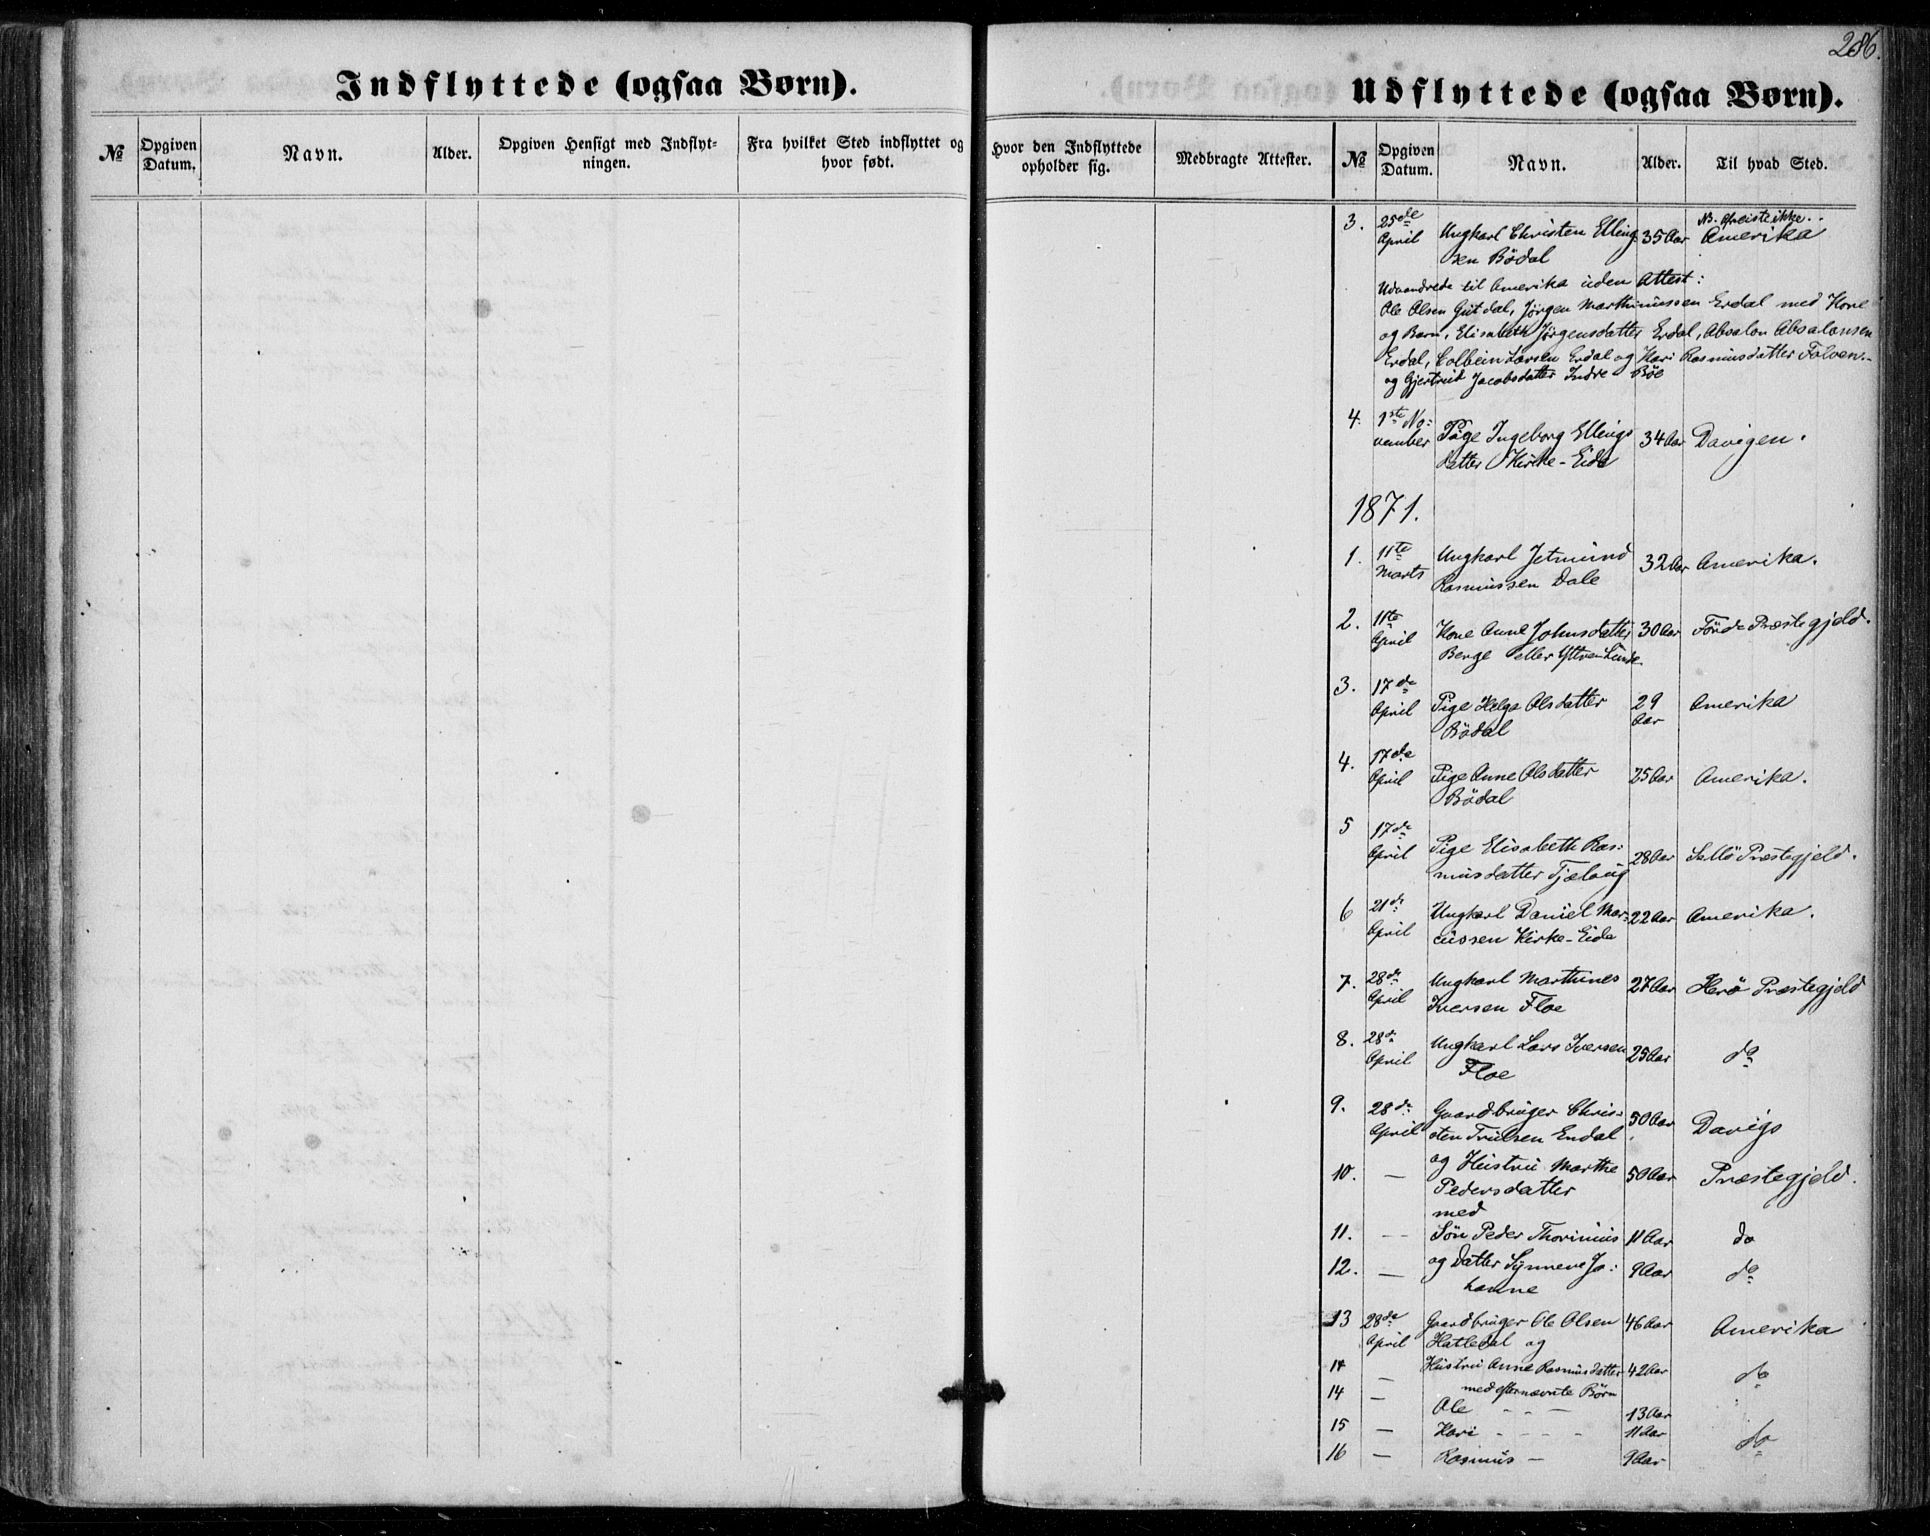 286.
Indflyttede (ogsaa Børn).
Udflyttede (ogsaa Børn).
№ Opgiven Datum. Navn. Alder. Opgiven Hensigt med Indflyt-ningen. Fra hvilket Sted indflyttet og hvor født. Hvor den Indflyttede opholder sig. Medbragte Attester. № Opgiven Datum. Navn. Alder. Til hvad Sted.
3. 25de NB. afreiste ikke.
April Ungkarl Christen Elling 35 Aar Amerika
sen Bödal
Udvandrede til Amerika uden Attest:
Ole Olsen Gutdal, Jörgen Marthinussen Erdal med Kone
og Barn, Elisabeth Jörgensdatter Erdal, Absalon Absalonsen
Erdal, Colbein Larsen Erdal og Kari Rasmusdatter Folven
og Gjertrud Jacobsdatter Indre Böe
4. 1ste No:
vember Pige Ingeborg Ellings 34 Aar Davigen.
datter Kirke-Eide
1871.
1. 11te Ungkarl Jetmund
Marts Rasmussen Dale 32 Aar Amerika.
2. 11te
April Kone Anne Johnsdatter 30 Aar Förde Præstegjeld.
Berge eller Ytre Linde
3. 17de
April Pige Helga Olsdatter 29 Aar Amerika
Bödal
4. 17de
April Pige Anne Olsdatter 25 Aar Amerika.
Bödal
5 17de
April Pige Elisabeth Ras:
musdatter Tjelaug 28 Aar Sellö Præstegjeld.
6 21de Ungkarl Daniel Mar: 22 Aar Amerika.
April cussen Kirke-Eide
7. 28de Ungkarl Marthines 27 Aar Herö Præstegjeld
April Iversen Floe
8. 28de Ungkarl Lars Iversen 25 Aar do
April Floe
9. 28de Gaardbruger Chris-
April sten Trulsen Erdal 50 Aar Davigs
10. — og Hustru Marthe 50 Aar Præstegjeld.
Pedersdatter
med
11. — Sön Peder Thorinius 11 Aar do
12. — og Datter Synneve Jo: 9 Aar do
hanne
13 28de Gaardbruger Ole Olsen 46 Aar Amerika
April Hatledal og
14 — Hustru Anne Rasmusdatter 42 Aar do
med efternævnte Börn
14 — Ole - - — 13 Aar
15 — Kari - - - - 11 Aar do
16 — Rasmus — 9 Aar